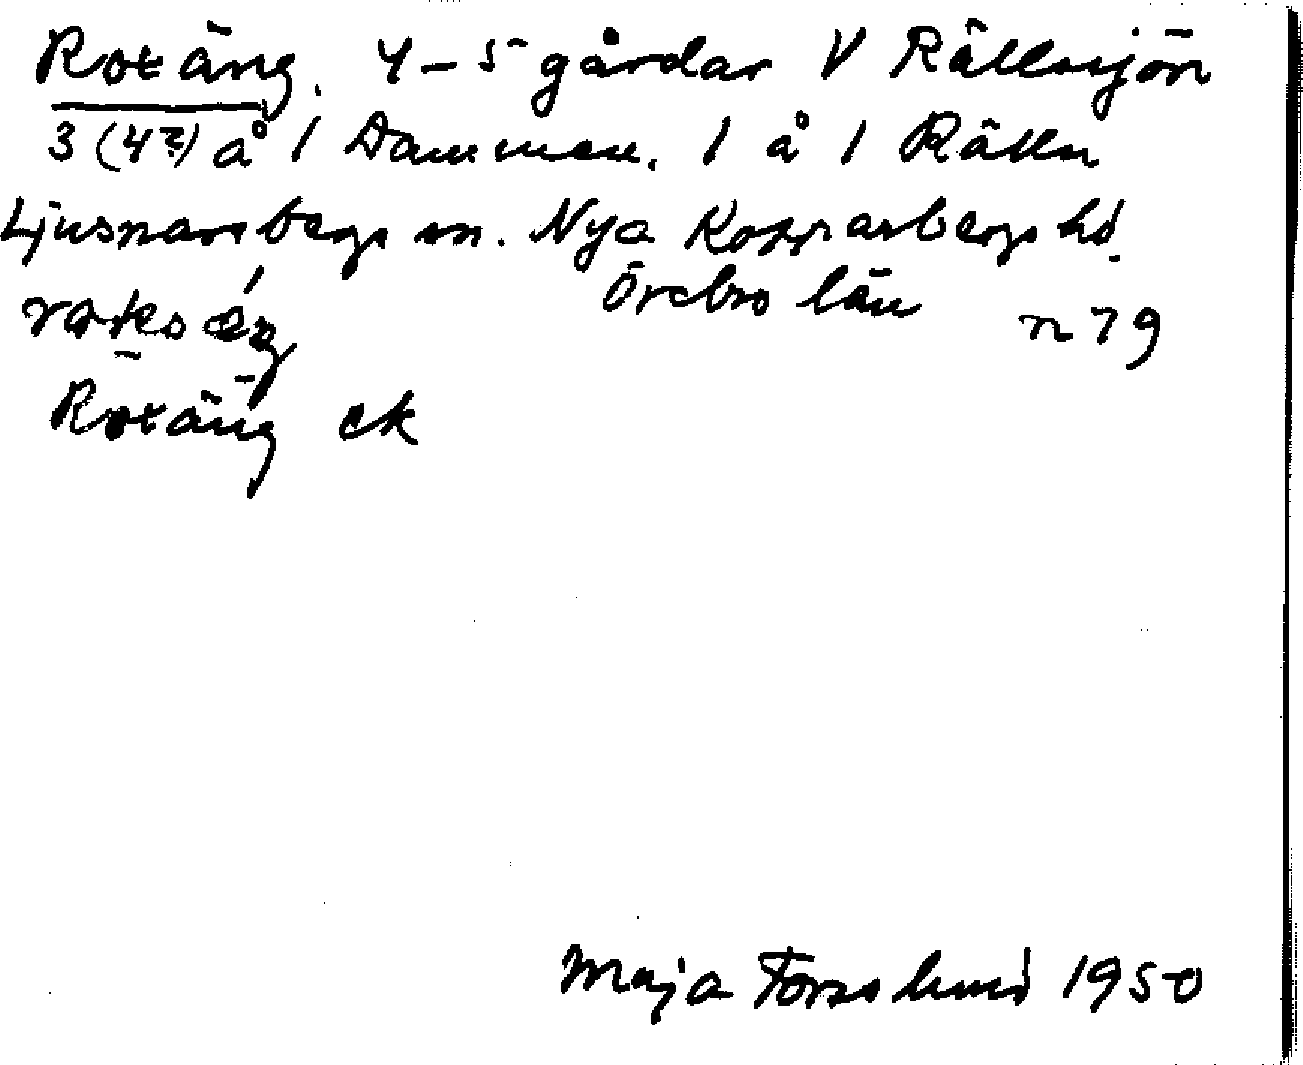 Rotäng. 4-5 gårdar V Rällsjön
3 (4?) å 1 Dammen. 1 å 1 Rälln
Ljusnarsbergs sn. Nya Kopparbergs hd.
Örebro län n 79
Rotäng ek
Maja Forsslund 1950